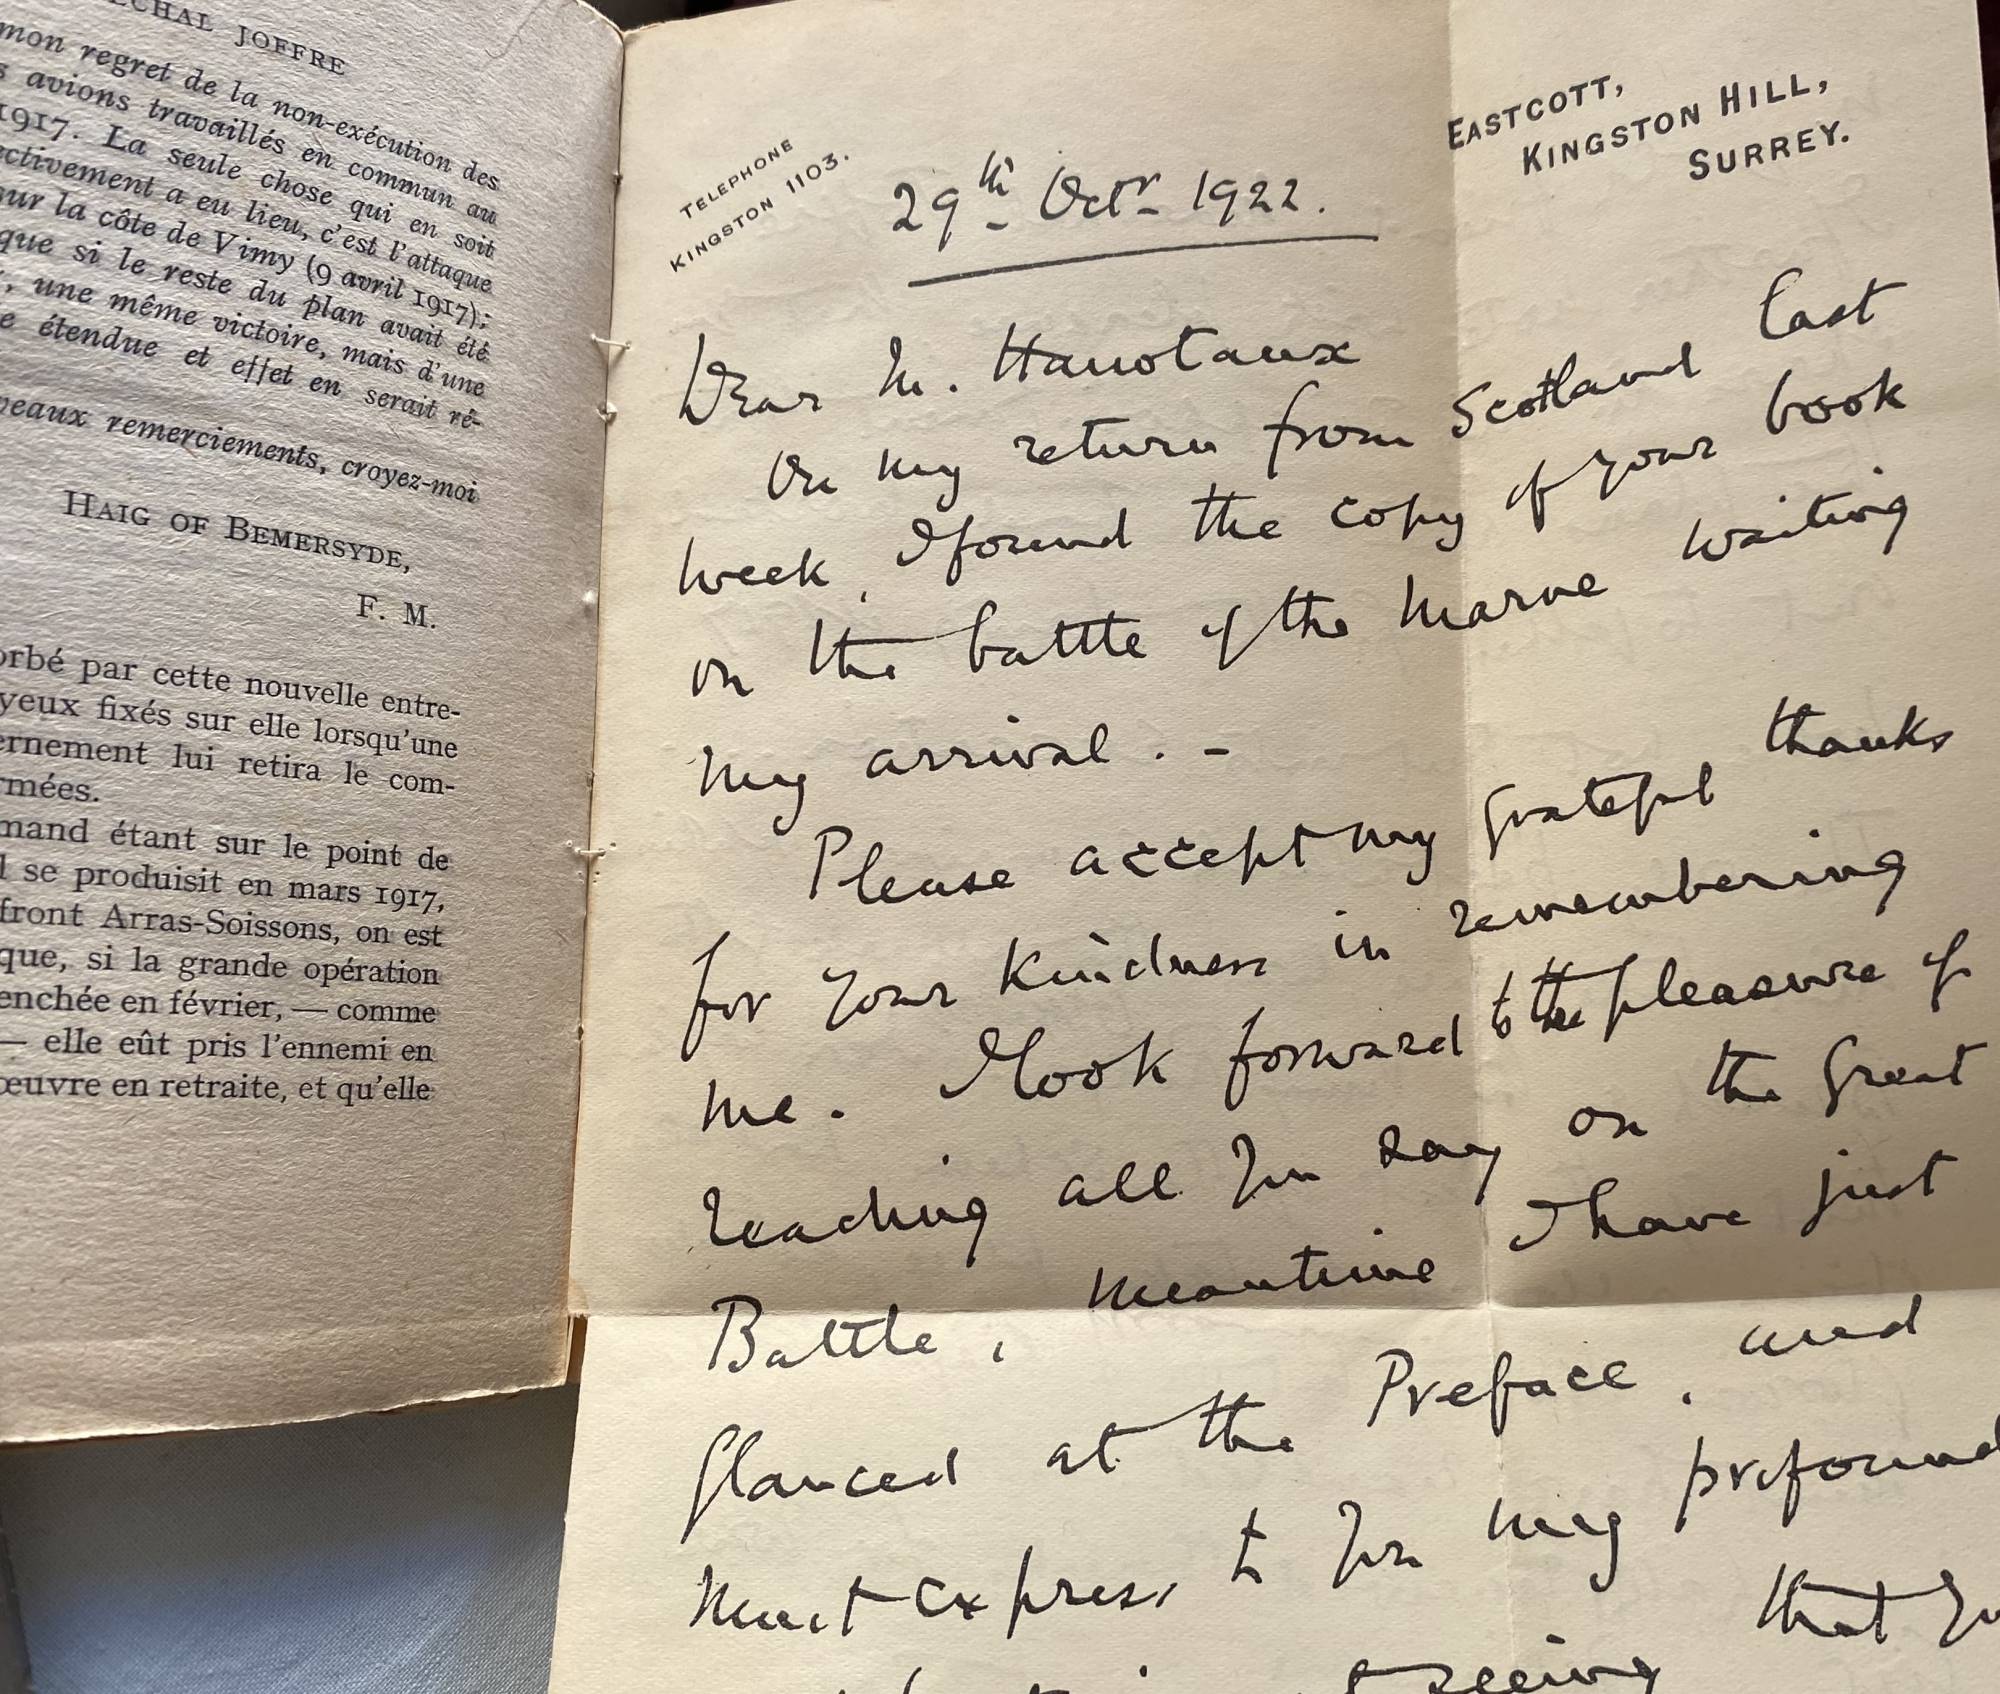 ÉCHAL JOFFRE
mon regret de la non-exécution des
s avions travaillés en commun au
1917. La seule chose qui en soit
ctivement a eu lieu, c'est l'attaque
sur la côte de Vimy (9 avril 1917);
que si le reste du plan avait été
, une même victoire, mais d'une
e étendue et effet en serait ré-
veaux remerciements, croyez-moi
HAIG OF BEMERSYDE,
F. M.
orbé par cette nouvelle entre-
yeux fixés sur elle lorsqu'une
ernement lui retira le com-
rmées.
mand étant sur le point de
l se produisit en mars 1917,
front Arras-Soissons, on est
que, si la grande opération
enchée en février, — comme
— elle eût pris l'ennemi en
œuvre en retraite, et qu'elle
TELEPHONE
KINGSTON 1103.
EASTCOTT,
KINGSTON HILL,
SURREY.
29th Octr 1922.
Dear M. Hanotaux
On my return from Scotland last
week, I found the copy of your book
on the battle of the Marne waiting
my arrival. -
Please accept my grateful thanks
for your kindness in remembering
me. I look forward to the pleasure of
reading all you say on the Great
Battle, meantime I have just
glanced at the Preface, and
must express to you my profound
that you
seeing